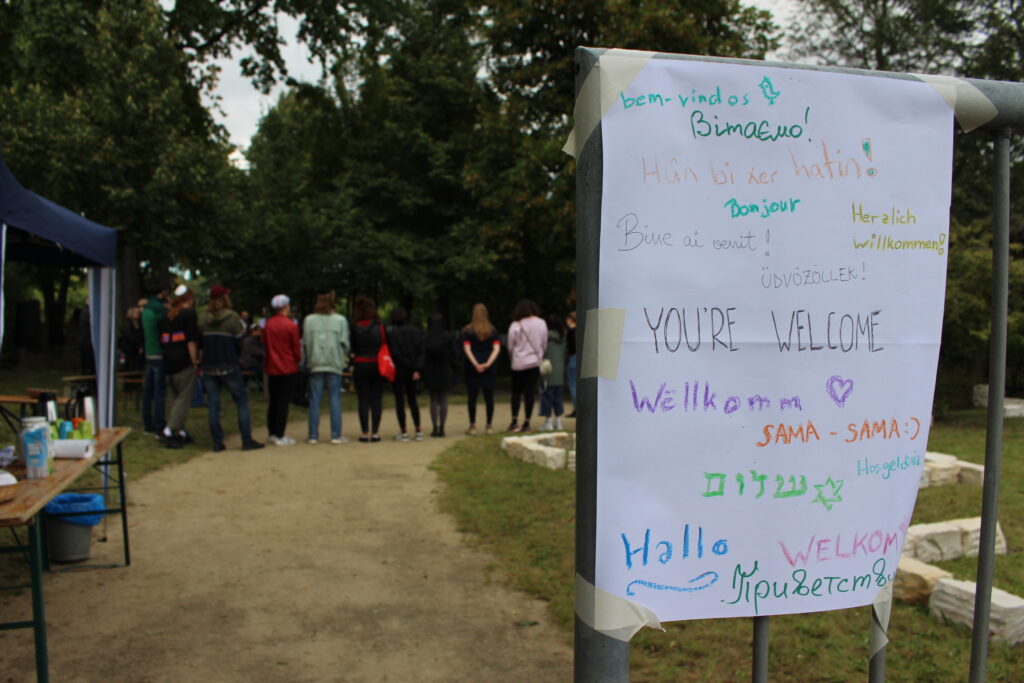 bem-vindos
Вітаємо!
Hûn bi xer hatin!
Bonjour
Herzlich
willkommen!
Bine ai venit!
ÜDVÖZÖLLEK!
YOU'RE WELCOME
Wëllkomm
SAMA - SAMA :)
שלום
Hallo
WELKOM